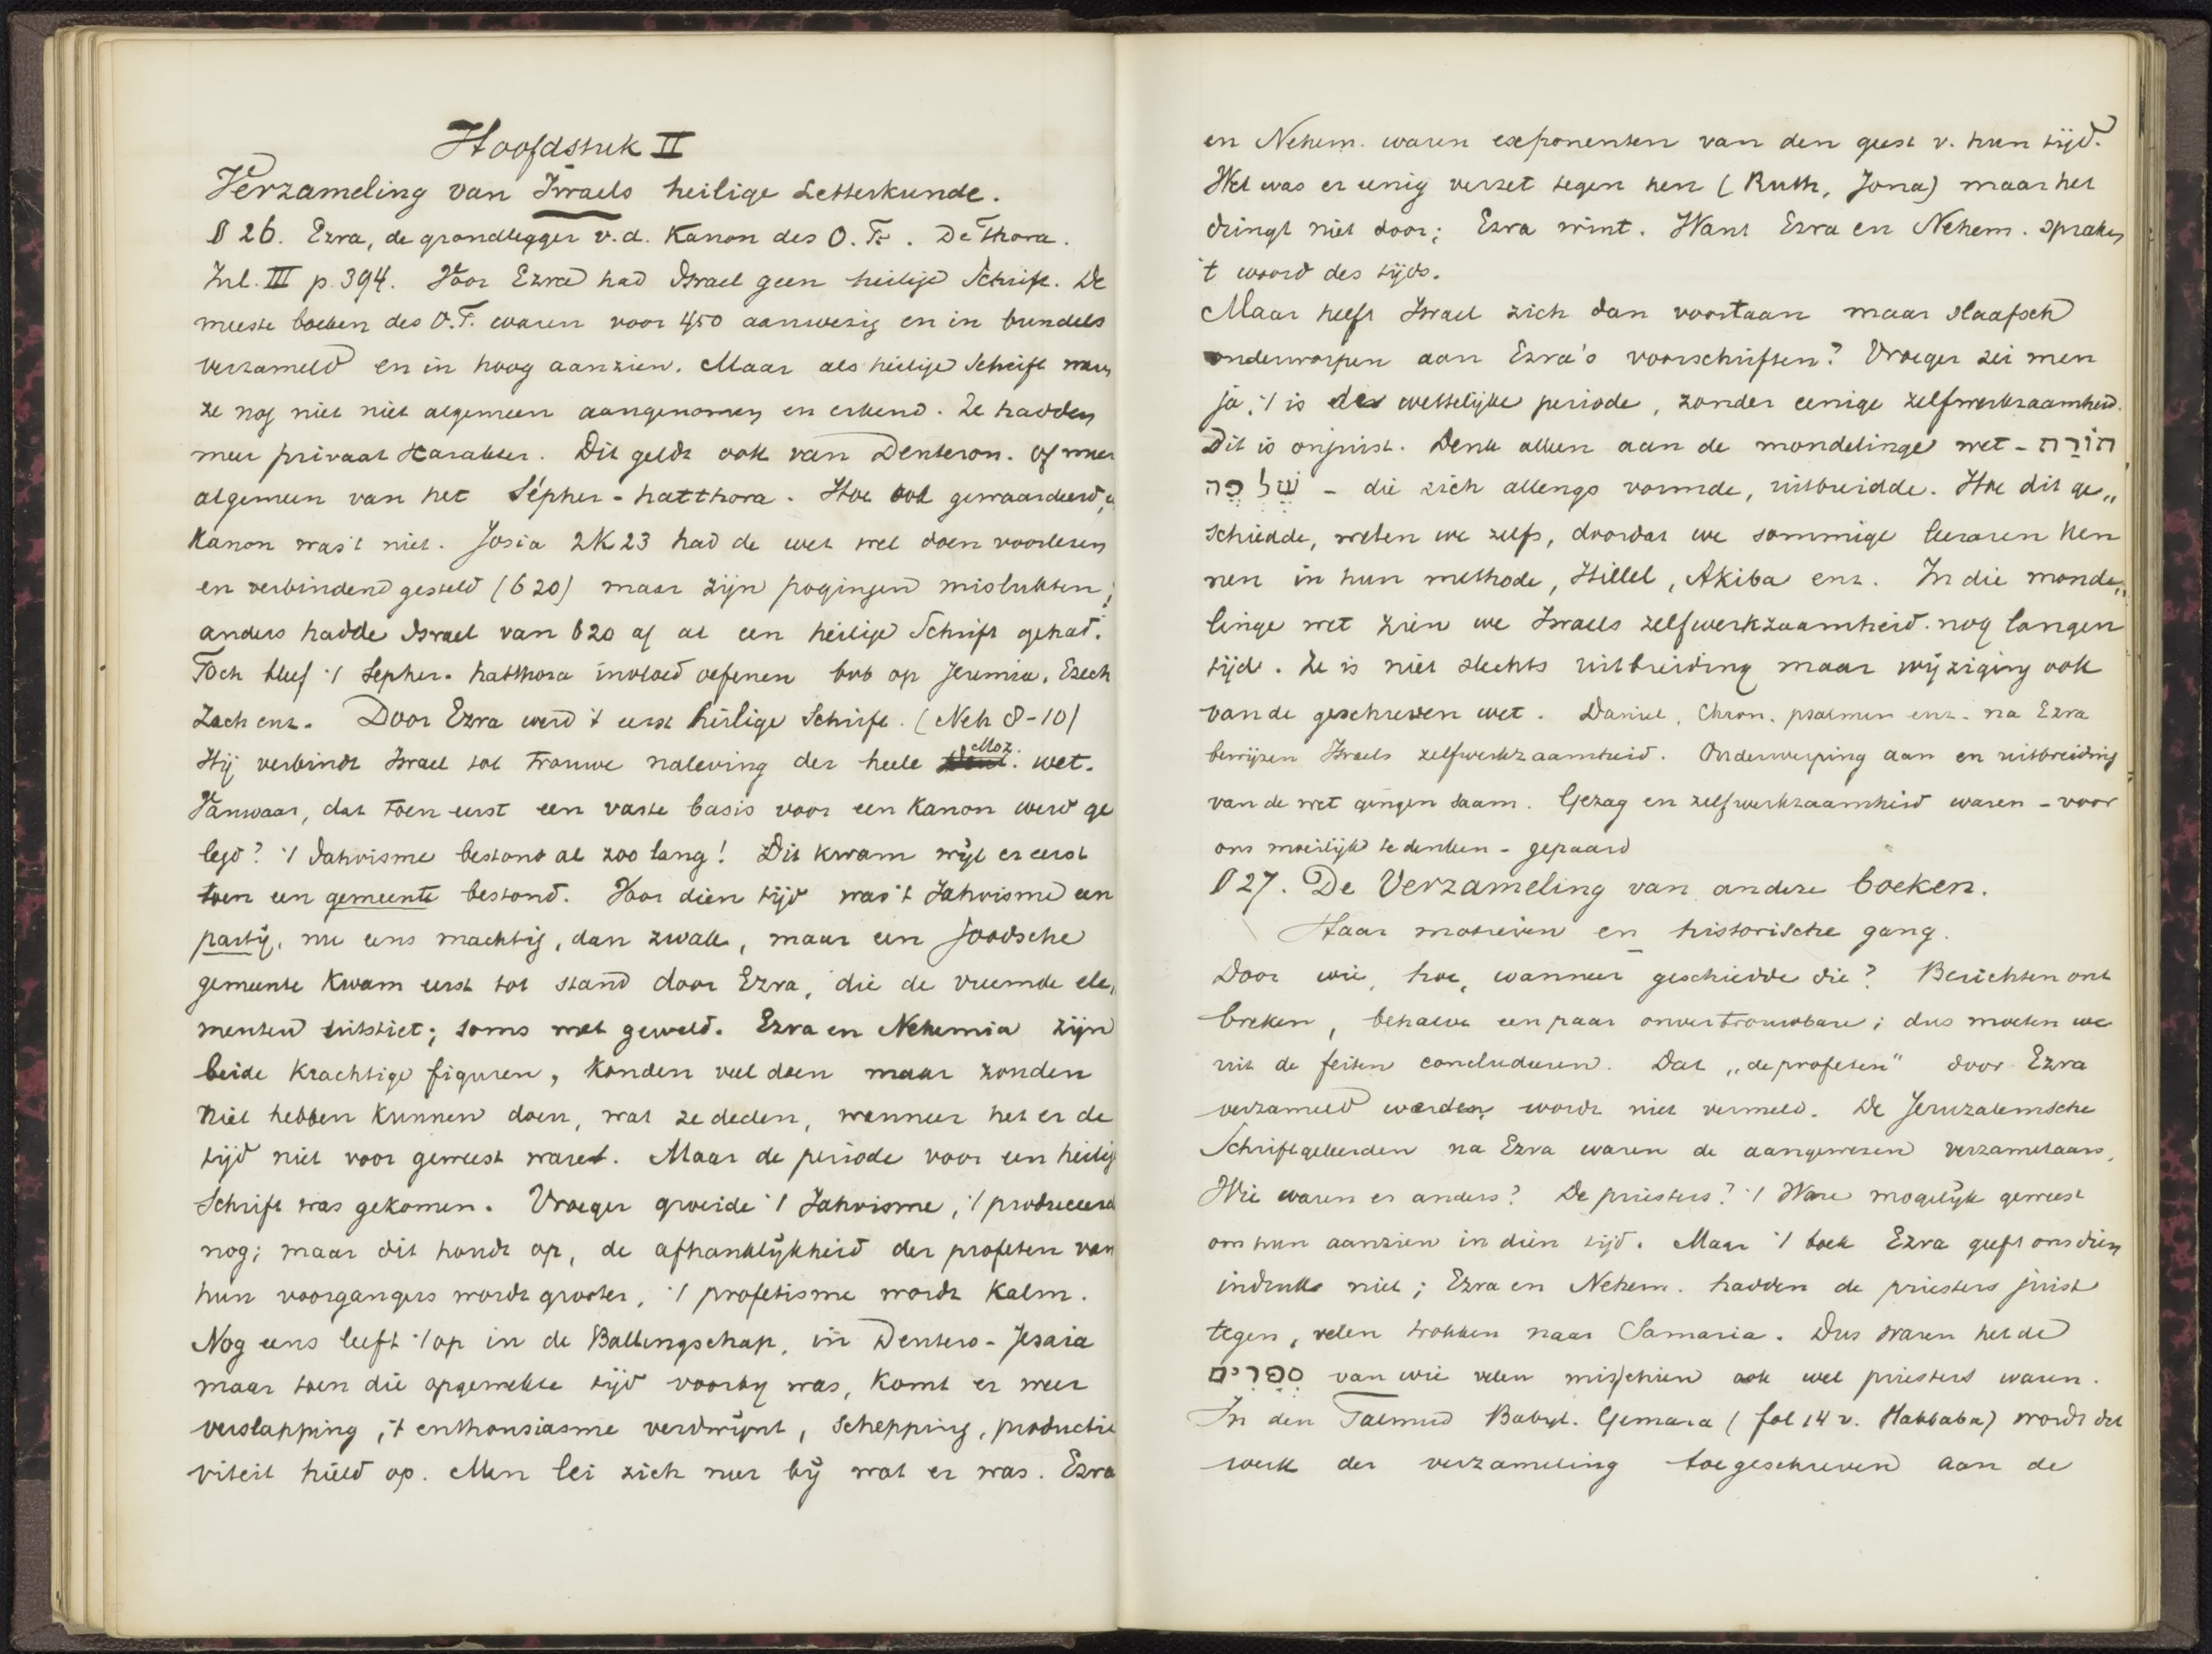 Hoofdstuk II
Verzameling van Israels heilige Letterkunde.
§ 26. Ezra, de grondlegger v.d. Kanon des O.T. De Thora.
Inl. III p. 394. Voor Ezra had Israel geen heilige Schrift. De
meeste boeken des O.T. waren voor 450 aanwezig en in bundels
verzameld en in hoog aanzien. Maar als heilige Schrift waren
ze nog niet niet algemeen aangenomen en erkend. Ze hadden
meer privaat Karakter. Dit geldt ook van Deuteron. of meer
algemeen van het Sépher-hatthora. Hoe ook gewaardeerd,
Kanon was 't niet. Josia 2K23 had de wet wel doen voorlezen
en verbindend gesteld (620) maar zijn pogingen mislukten;
anders hadde Israel van 620 af al een heilige Schrift gehad.
Toch bleef 't Sepher-hatthora invloed oefenen bvb op Jeremia, Ezech
Zach enz. Door Ezra werd 't eerst heilige Schrift. (Neh 8-10)
Hij verbindt Israel tot trouwe naleving der heele Moz. wet.
Vanwaar, dat toen eerst een vaste basis voor een Kanon werd ge
legd? 't Jahvisme bestond al zoo lang! Dit kwam wijl er eerst
toen een gemeente bestond. Voor dien tijd was 't Jahvisme een
partij, nu eens machtig, dan zwak, maar een Joodsche
gemeente kwam eerst tot stand door Ezra, die de vreemde ele„
menten uitstiet; soms met geweld. Ezra en Nehemia zijn
beide Krachtige figuren, konden veel doen maar zouden
niet hebben Kunnen doen, wat ze deden, wanneer het er de
tijd niet voor geweest ware. Maar de periode voor een heilige
Schrift was gekomen. Vroeger groeide 't Jahvisme, 't produceerde
nog; maar dit houdt op, de afhanklijkheid der profeten van
hun voorgangers wordt grooter, 't profetisme wordt Kalm.
Nog eens leeft 't op in de Ballingschap, in Deutero-Jesaia
maar toen die opgewekte tijd voorby was, komt er weer
verslapping, 't enthousiasme verdwijnt, schepping, producti
viteit hield op. Men lei zich neer bij wat er was. Ezra
en Nehem. waren exponenten van den geest v. hun tijd.
Wel was er eenig verzet tegen hen (Ruth, Jona) maar het
dringt niet door; Ezra wint. Want Ezra en Nehem. spraken
't woord des tijds.
Maar heeft Israel zich dan voortaan maar slaafsch
onderworpen aan Ezra's voorschriften? Vroeger zei men
ja, 't is de wettelijke periode, zonder eenige zelfwerkzaamheid.
Dit is onjuist. Denk alleen aan de mondelinge wet - תּוֹרָה
שֶׁל פֶּה - die zich allengs vormde, uitbreidde. Hoe dit ge„
schiedde, weten we zelfs, doordat we sommige leeraren Ken
nen in hun methode, Hillel, Akiba enz. In die monde„
linge wet zien we Israels zelfwerkzaamheid nog langen
tijd. Ze is niet slechts uitbreiding maar wijziging ook
van de geschreven wet. Daniel, Chron. psalmen enz. na Ezra
bewijzen Israels zelfwerkzaamheid. Onderwerping aan en uitbreiding
van de wet gingen saam. Gezag en zelfwerkzaamheid waren - voor
ons moeilijk te denken - gepaard
§ 27. De Verzameling van andere boeken.
Haar motieven en historische gang.
Door wie, hoe, wanneer geschiedde die? Berichten ont
breken, behalve een paar onvertrouwbare; dus moeten we
uit de feiten concludeeren. Dat „de profeten" door Ezra
verzameld werden, wordt niet vermeld. De Jeruzalemsche
Schriftgeleerden na Ezra waren de aangewezen verzamelaars.
Wie waren er anders? De priesters? 't Ware mogelijk geweest
om hun aanzien in dien tijd. Maar 't boek Ezra geeft ons dien
indruk niet; Ezra en Nehem. hadden de priesters juist
tegen, velen trokken naar Samaria. Dus waren het de
סֹפְרִים van wie velen misschien ook wel priesters waren.
In den Talmud Babyl. Gemara (fol 14 v. Habbaba) wordt dat
werk der verzameling toegeschreven aan de